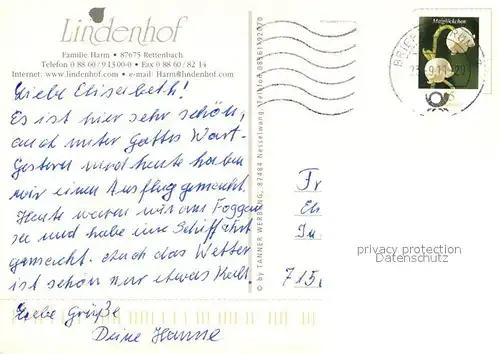 Lindenhof
Familie Harm • 87675 Rettenbach
Telefon 0 88 60 / 9 13 00-0 • Fax 0 88 60 / 82 14
Internet: www.lindenhof.com • e-mail: Harm@lindenhof.com
Liebe Elisabeth!
Es ist hier sehr schön,
auch unter Gottes Wort.
Gestern und heute haben
wir einen Ausflug gemacht.
Heute waren wir am Foggen
see und habe eine Schiffahrt
gemacht. Auch das Wetter
ist schön nur etwas kalt
Liebe Grüße
Deine Hanne
© by TANNER WERBUNG, 87484 Nesselwang, Telefon 08361/92070
Maiglöckchen
BRIEF
Fr
El
In
715
privacy protection
Datenschutz